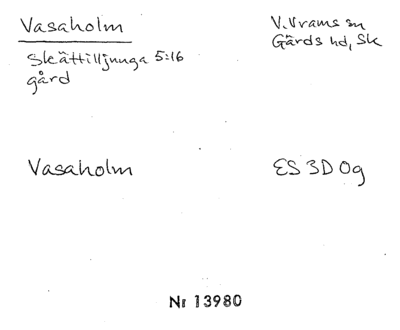 Vasaholm
V. Vrams sn
Gärds hd, Sk
Skättilljunga 5:16
gård
Vasaholm
ES 3D 0g
Nr 13980